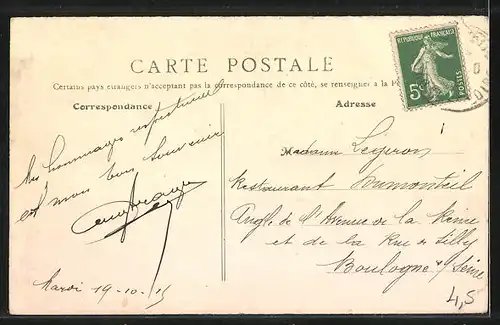 CARTE POSTALE
Certains pays étrangers n'acceptant pas la correspondance de ce côté, se renseigner à la
Correspondance
Adresse
REPUBLIQUE FRANÇAISE
5c
POSTES
Mes hommages respectueux
et mon bon souvenir
Mardi 19-10-15
Madame Legeron
Restaurant Dumonteil
Angle de l'Avenue de la Reine
et de la Rue de Silly
Boulogne s/ Seine
4,5